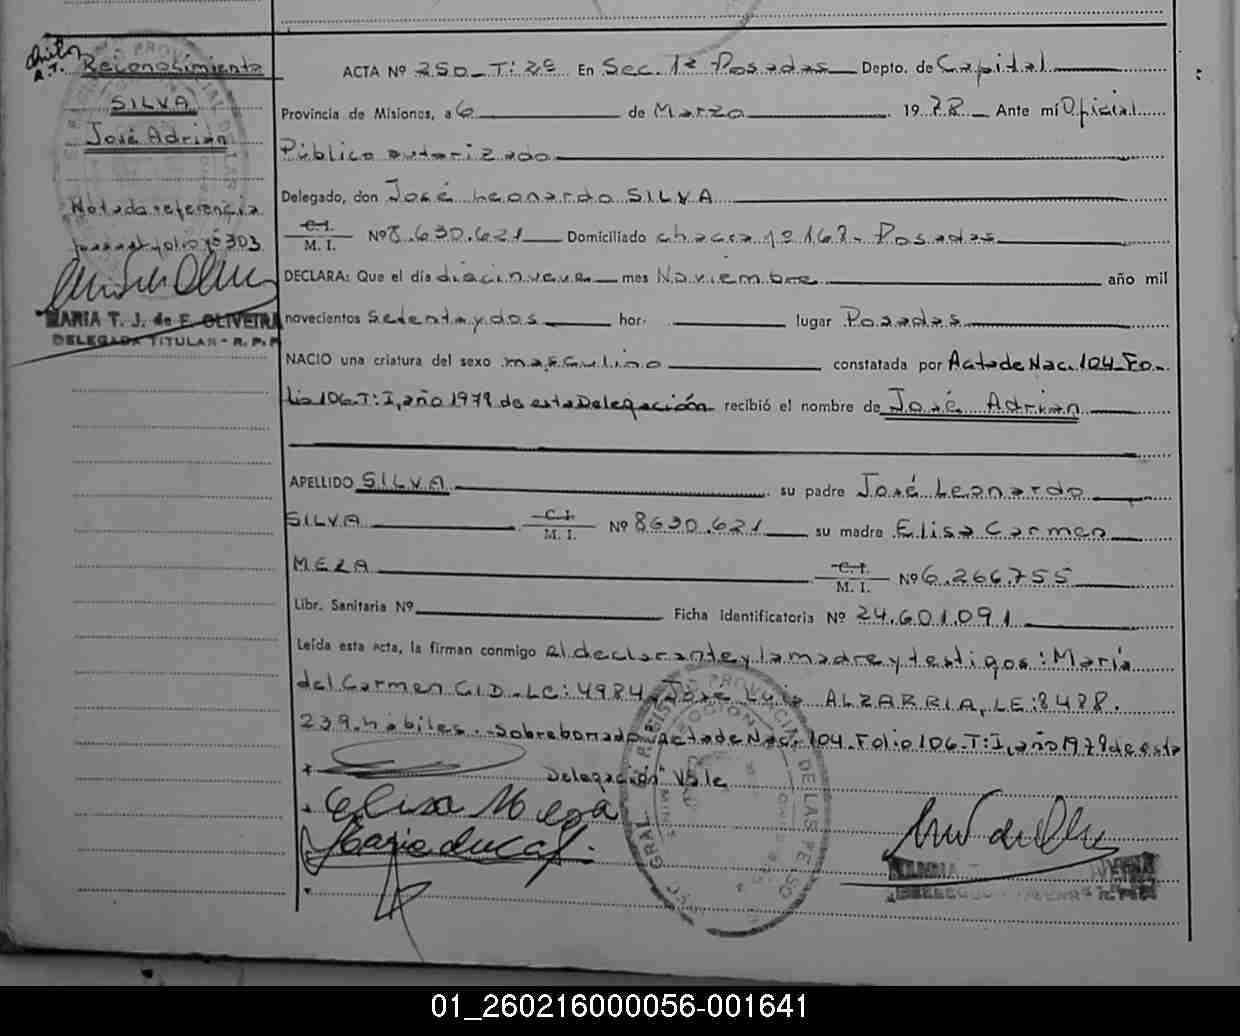 Reconosimiento
SILVA
José Adrián
Nota de referencia
folio nº 303
MARIA T. J. de F. OLIVEIRA
DELEGADA TITULAR - R. P. P.
ACTA Nº 250 - T: 2º En Sec. 1ª Posadas Depto. de Capital
Provincia de Misiones, a 6 de Marzo 1978 Ante mí Oficial
Público autorizado
Delegado, don José Leonardo SILVA
C.I. M. I. Nº 8.630.621 Domiciliado chacra nº 167 - Posadas
DECLARA: Que el día diecinueve mes Noviembre año mil
novecientos setenta y dos hor. lugar Posadas
NACIO una criatura del sexo masculino constatada por Acta de Nac. 104 Fo-
lio 106. T: I, año 1979 de esta Delegación recibió el nombre de José Adrián
APELLIDO SILVA su padre José Leonardo
SILVA C.I. M. I. Nº 8630.621 su madre Elisa Carmen
MEZA C.I. M. I. Nº 6.266.755
Libr. Sanitaria Nº Ficha identificatoria Nº 24.601.091
Leída esta acta, la firman conmigo el declarante y la madre y testigos: María
del Carmen CID - LC: 4984 José Luis ALZARRIA, LE: 8488.
239. hábiles. - Sobreborrado "acta de Nac. 104. Folio 106. T: I, año 1979 de esta
Delegación" Vale
Elisa Meza
01_260216000056-001641